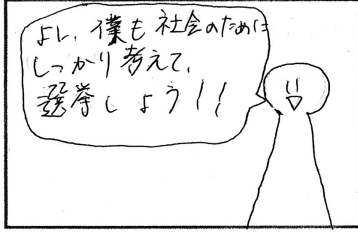 よし、僕も社会のために
しっかり考えて、
選挙しよう!!